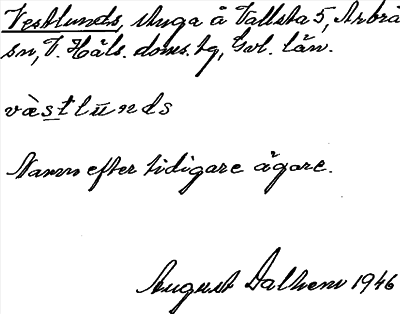 Vestlunds, stuga å Vallsta 5, Arbrå
sn, V. Häls. doms. tg, Gvl. län.
vàstlūnds
Namn efter tidigare ägare.
August Dalhem 1946